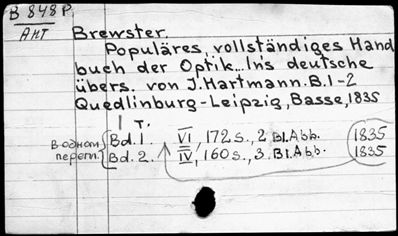 B 848 P.
Ант
Brewster.
Populäres, vollständiges Hand
buch der Optik... Ins deutsche
übers. von J. Hartmann. B. 1-2
Quedlinburg-Leipzig, Basse, 1835
1 т.
В одном перепл.
Bd. 1. VI, 172 s., 2 Bl. Abb. 1835
Bd. 2. IV, 160 s., 3. Bl. Abb. 1835